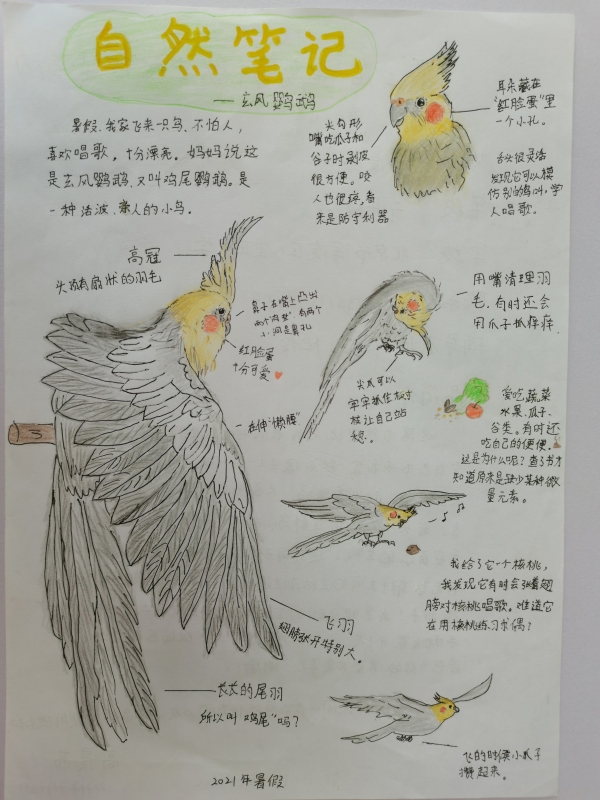 自然笔记
—玄风鹦鹉
暑假，我家飞来一只鸟，不怕人，
喜欢唱歌，十分漂亮。妈妈说这
是玄风鹦鹉，又叫鸡尾鹦鹉。是
一种活波、亲人的小鸟。
尖勾形
嘴吃瓜子和
谷子时剥皮
很方便。咬
人也很疼，看
来是防守利器
耳朵藏在
“红脸蛋”里
一个小孔。
舌头很灵活
发现它可以模
仿别的鸟叫，学
人唱歌。
高冠
头顶有扇状的羽毛
鼻子在嘴上凸出
两个肉
有两个
小洞是鼻孔
红脸蛋
十分可爱
用嘴清理羽
毛，有时还会
用爪子抓痒痒．
尖爪可以
牢牢抓住树
枝让自己站
稳。
在伸“懒腰”
爱吃蔬菜
水果、瓜子、
谷类。有时还
吃自己的便便．
这是为什么呢？查了书才
知道原来是缺少某种微
量元素。
我给了它一个核桃，
我发现它有时会张着翅
膀对核桃唱歌。难道它
在用核桃练习求偶？
飞羽
翅膀张开特别大。
长长的尾羽
所以叫“鸡尾”吗？
飞的时候小爪子
起来。
2021年暑假